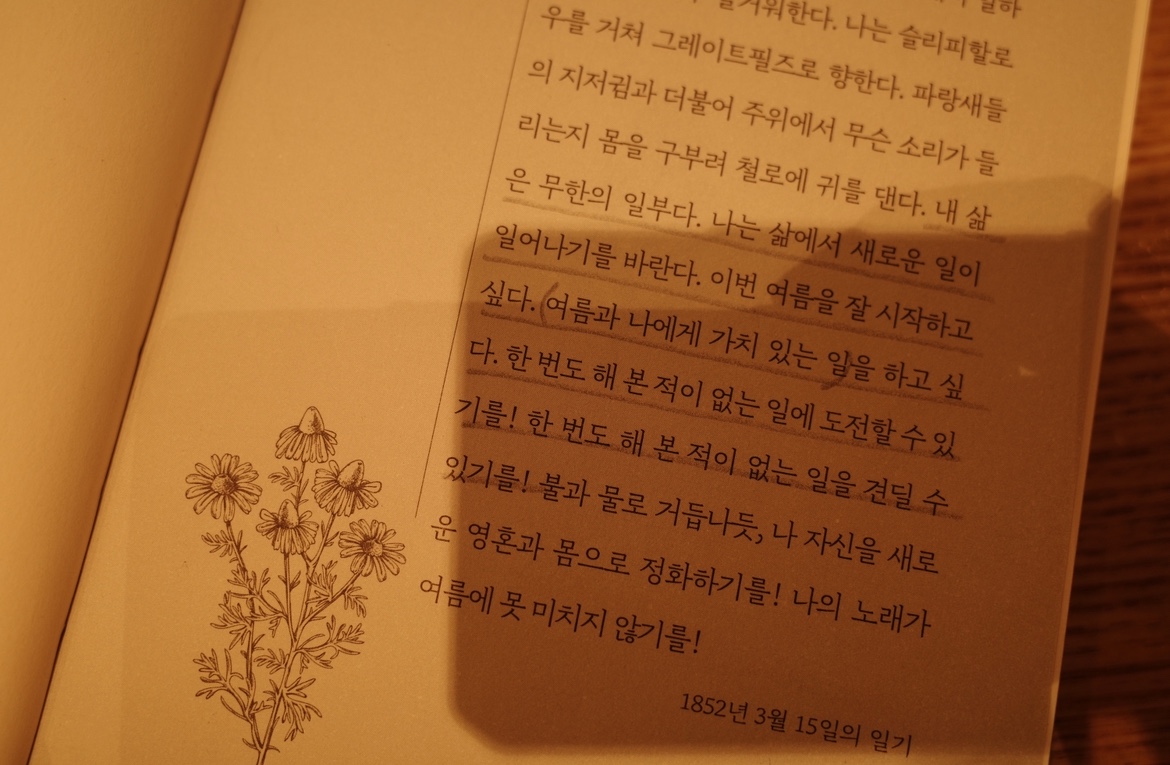 거워한다. 나는 슬리피할로
우를 거쳐 그레이트필즈로 향한다. 파랑새들
의 지저귐과 더불어 주위에서 무슨 소리가 들
리는지 몸을 구부려 철로에 귀를 댄다. 내 삶
은 무한의 일부다. 나는 삶에서 새로운 일이
일어나기를 바란다. 이번 여름을 잘 시작하고
싶다. (여름과 나에게 가치 있는 일)을 하고 싶
다. 한 번도 해 본 적이 없는 일에 도전할 수 있
기를! 한 번도 해 본 적이 없는 일을 견딜 수
있기를! 불과 물로 거듭나듯, 나 자신을 새로
운 영혼과 몸으로 정화하기를! 나의 노래가
여름에 못 미치지 않기를!
1852년 3월 15일의 일기